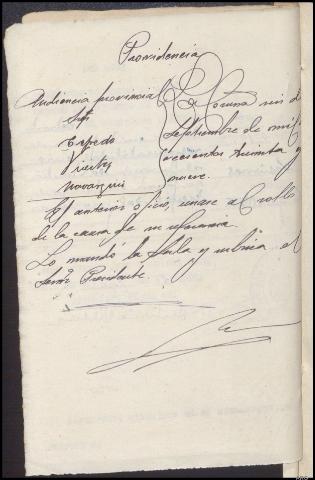 Providencia
Audiencia provincial
Sres
La Coruña seis de
Septiembre de mil no
vecientos treinta y
nueve.
El anterior oficio, unase al rollo
de la causa de su referencia.
Lo mandó la Sala y rubrica el
Señor Presidente.